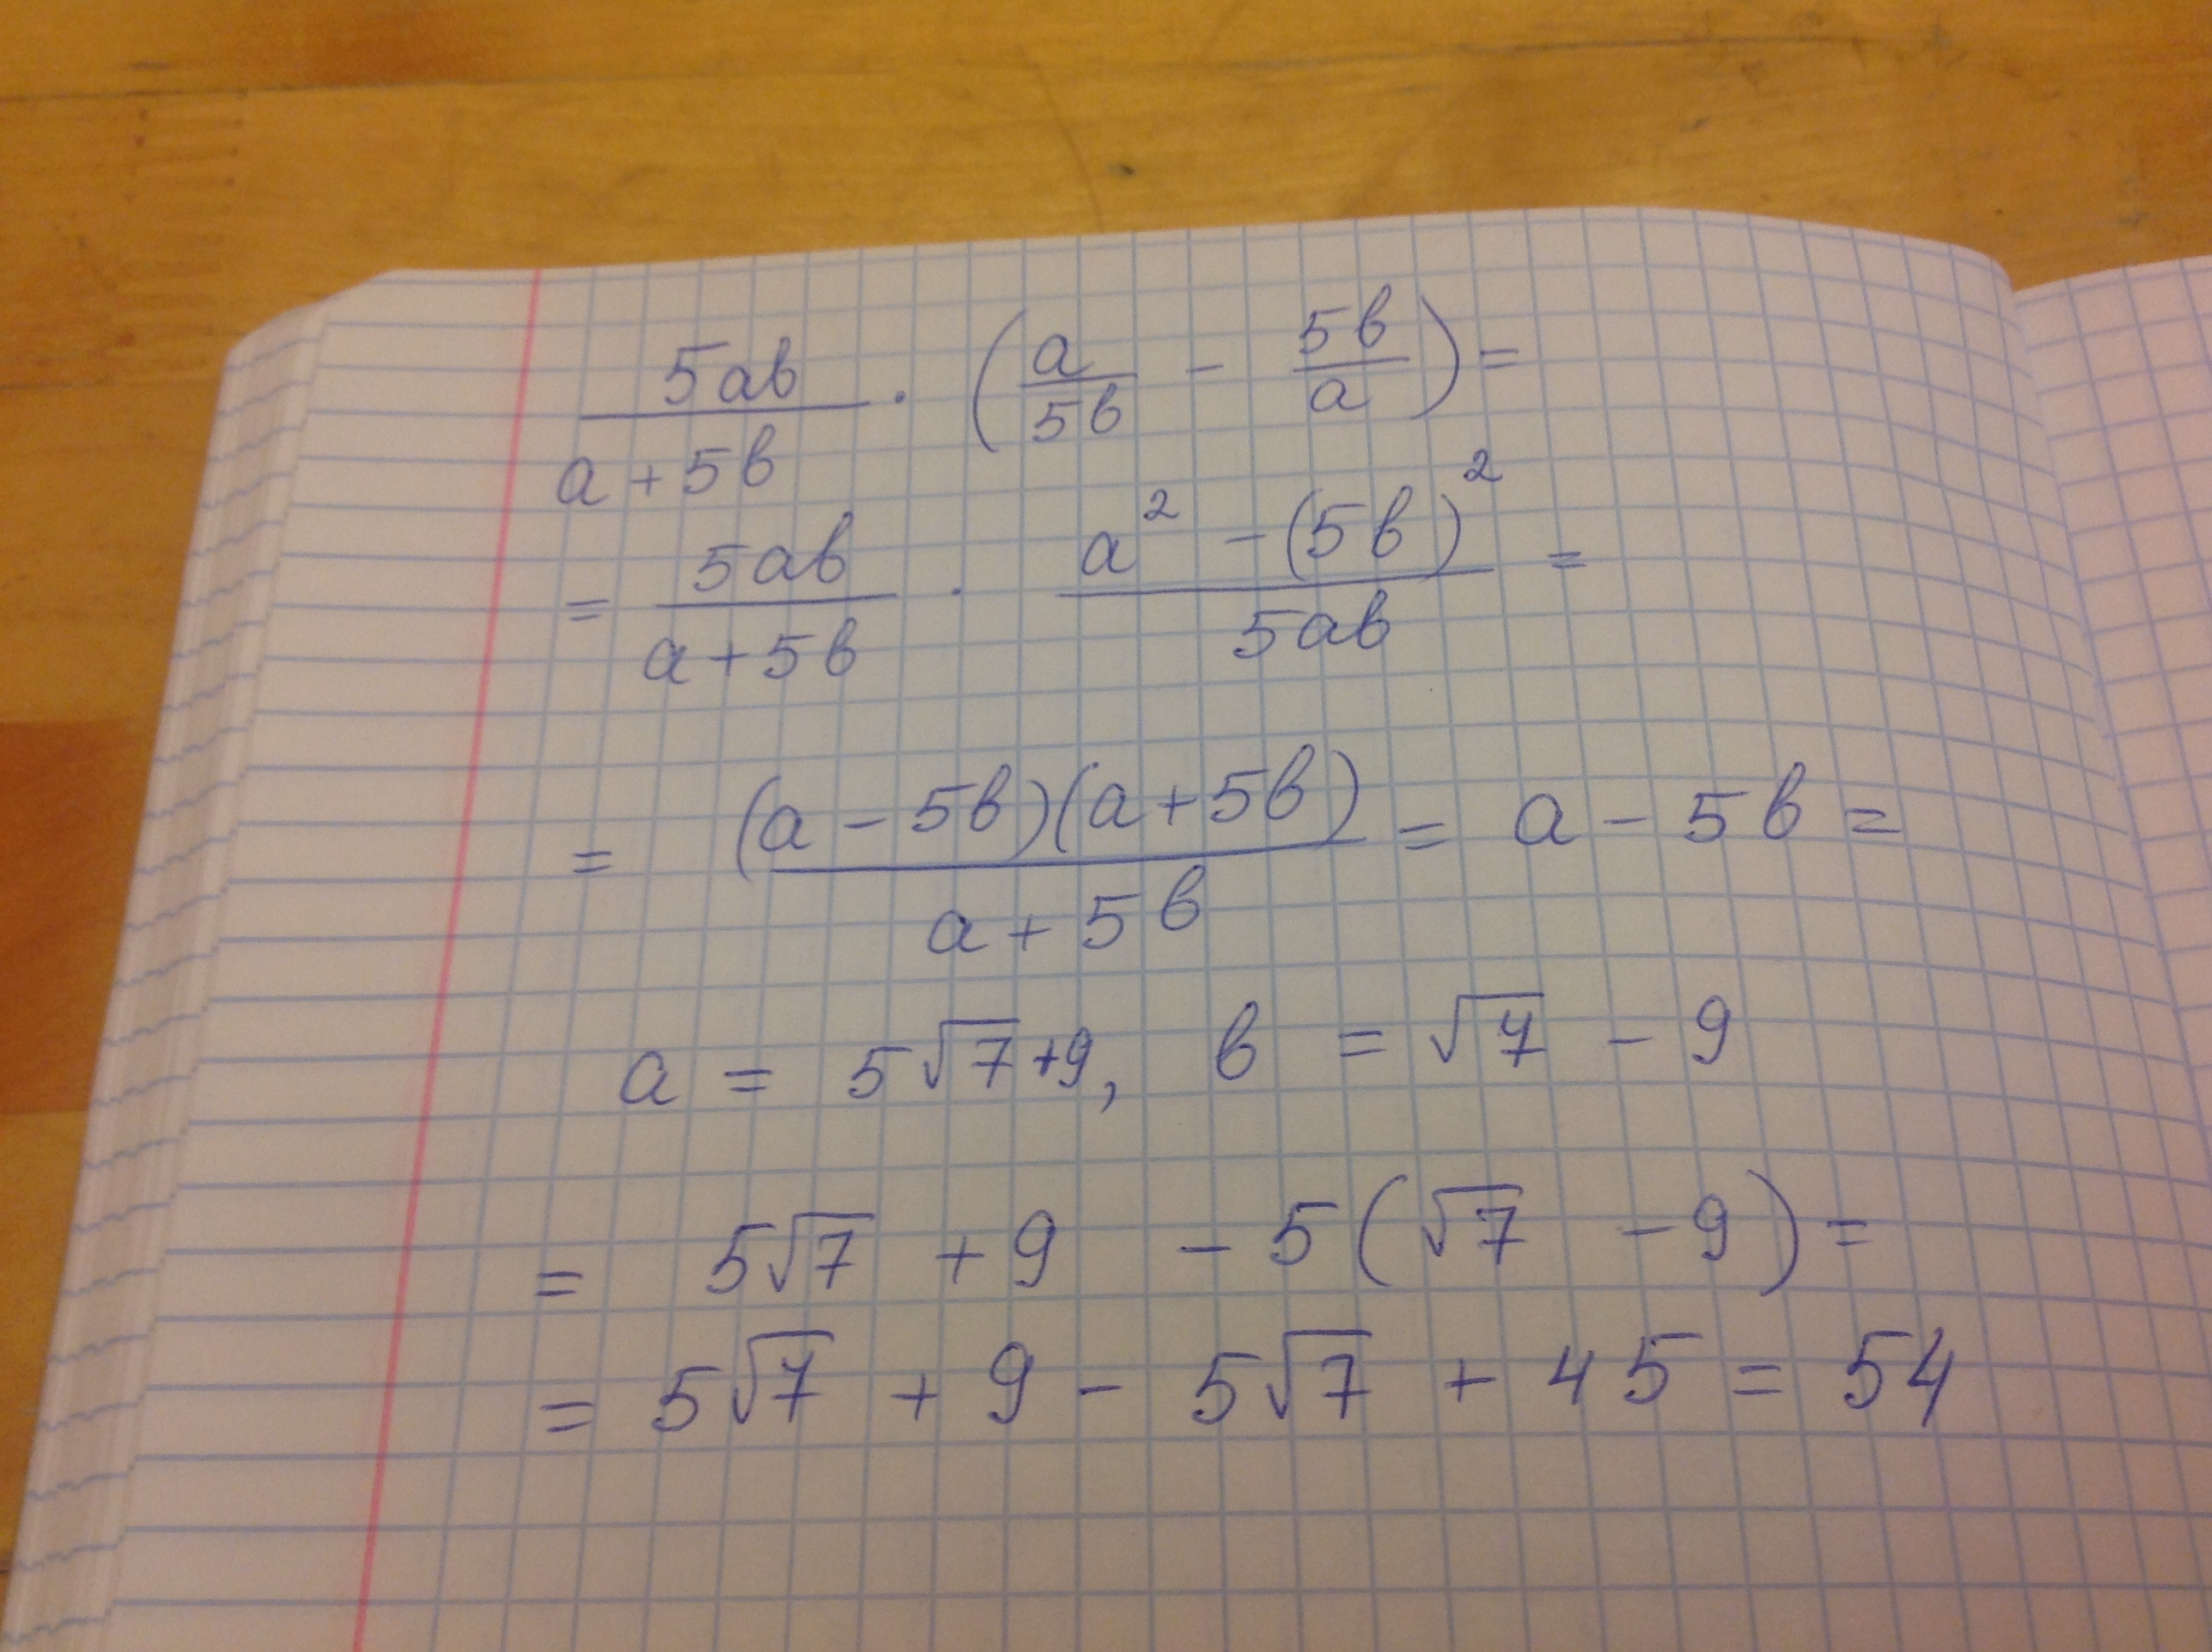 5ab/(a+5b) · (a/5b - 5b/a) =
= 5ab/(a+5b) · (a² - (5b)²)/5ab =
= (a-5b)(a+5b)/(a+5b) = a - 5b =
a = 5√7+9, b = √7 - 9
= 5√7 + 9 - 5(√7 - 9) =
= 5√7 + 9 - 5√7 + 45 = 54